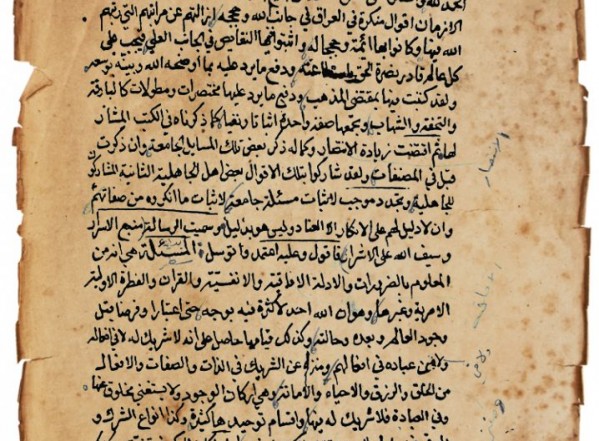 الازمان اقوال منكرة في العراق في جانب الله وحججه ازالتهم عن مراتبهم التي رتبهم
الله فيها وكانوا بها ائمة وحججا له واثبتوا بها النقايص في الجانب العلي فيجب على
كل عالم قادر بنصرة الحق ودفع ما يرد عليه بما اوضحه الله وبينه بوسعه
ولقد كتبت فيها بمقتضى المذهب ودفع ما يرد عليها مختصرات ومطولات كالبارقة
والتحفة والشهاب وبجمعها صفة واحدة اثباتا ونفيا كما ذكرناه في الكتب المشار
لها ثم اقتضت زيادة الانتصار وكماله ذكر بعض تلك المسايل الجامعة وان ذكرت
قبل في المصنفات ولقد شاركوا بتلك الاقوال بعض اهل الجاهلية الثانية المشاركة
للجاهلية وتجدد موجب لاثبات مسئلة جامعة لاثبات ما انكروه من صفاتهم
وان لا دليل لهم على الانكار الا العناد وليس هو بدليل وسميت الرسالة منبع الاسرار
وسيف الله على الاشرار فاقول وعليه اعتمد وبه توسل المسئلة هي انه من
المعلوم بالضروريات والادلة الافاقية والانفسية والقران والفطرة الاولية
الامرية وغيرها وهو ان الله احد لا كثرة فيه بوجه حتى اعتبارا وفرضا قبل
وجود العالم وبعده وحالته وكذلك قيامها حاصل على انه لا شريك له لا في افعاله
ولا من عباده في افعالهم ومنزه عن الشريك في الذات والصفات والافعال
من الخلق والرزق والاحياء والاماتة وهي اركان الوجود ولا يستغنى مخلوق عنها
وفي العبادة فلا شريك له فيها واقسام توحيدها كثيرة وكذا انواع الشرك و